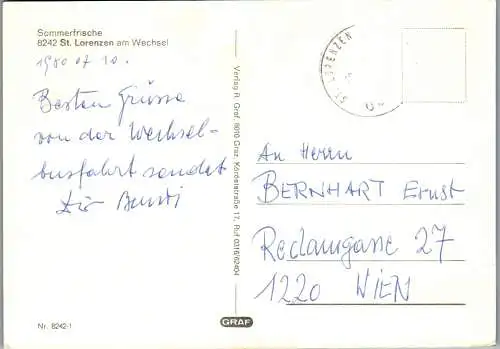 Sommerfrische
8242 St. Lorenzen am Wechsel
1980 07 10.
Besten Grüsse
von der Wechsel-
busfahrt sendet
Dir Bursti
Verlag R. Graf, 8010 Graz, Körösistraße 17, Ruf 0316/62404
ST. LORENZEN
An Herrn
BERNHART Ernst
Reclamgasse 27
1220 WIEN
Nr. 8242-1
GRAF